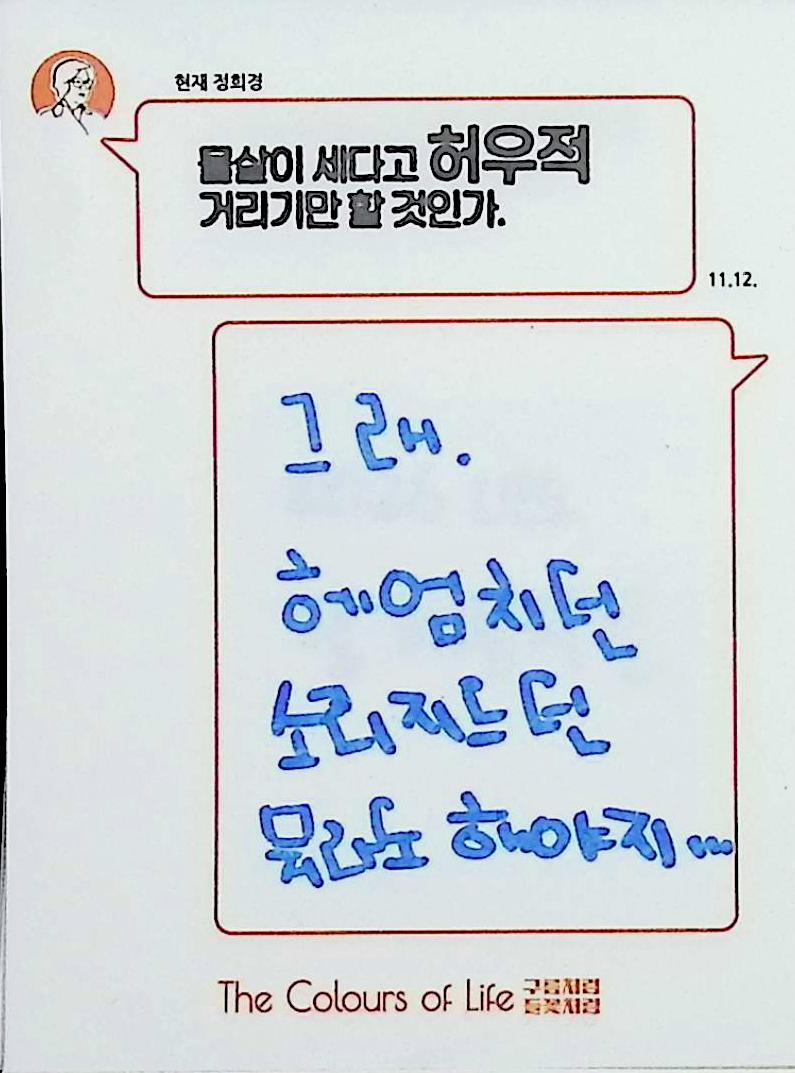 현재 정희경
물살이 세다고 허우적
거리기만 할 것인가.
11.12.
그래.
헤엄치던
소리지르던
뭐라도 해야지...
The Colours of Life 구름처럼
들꽃처럼